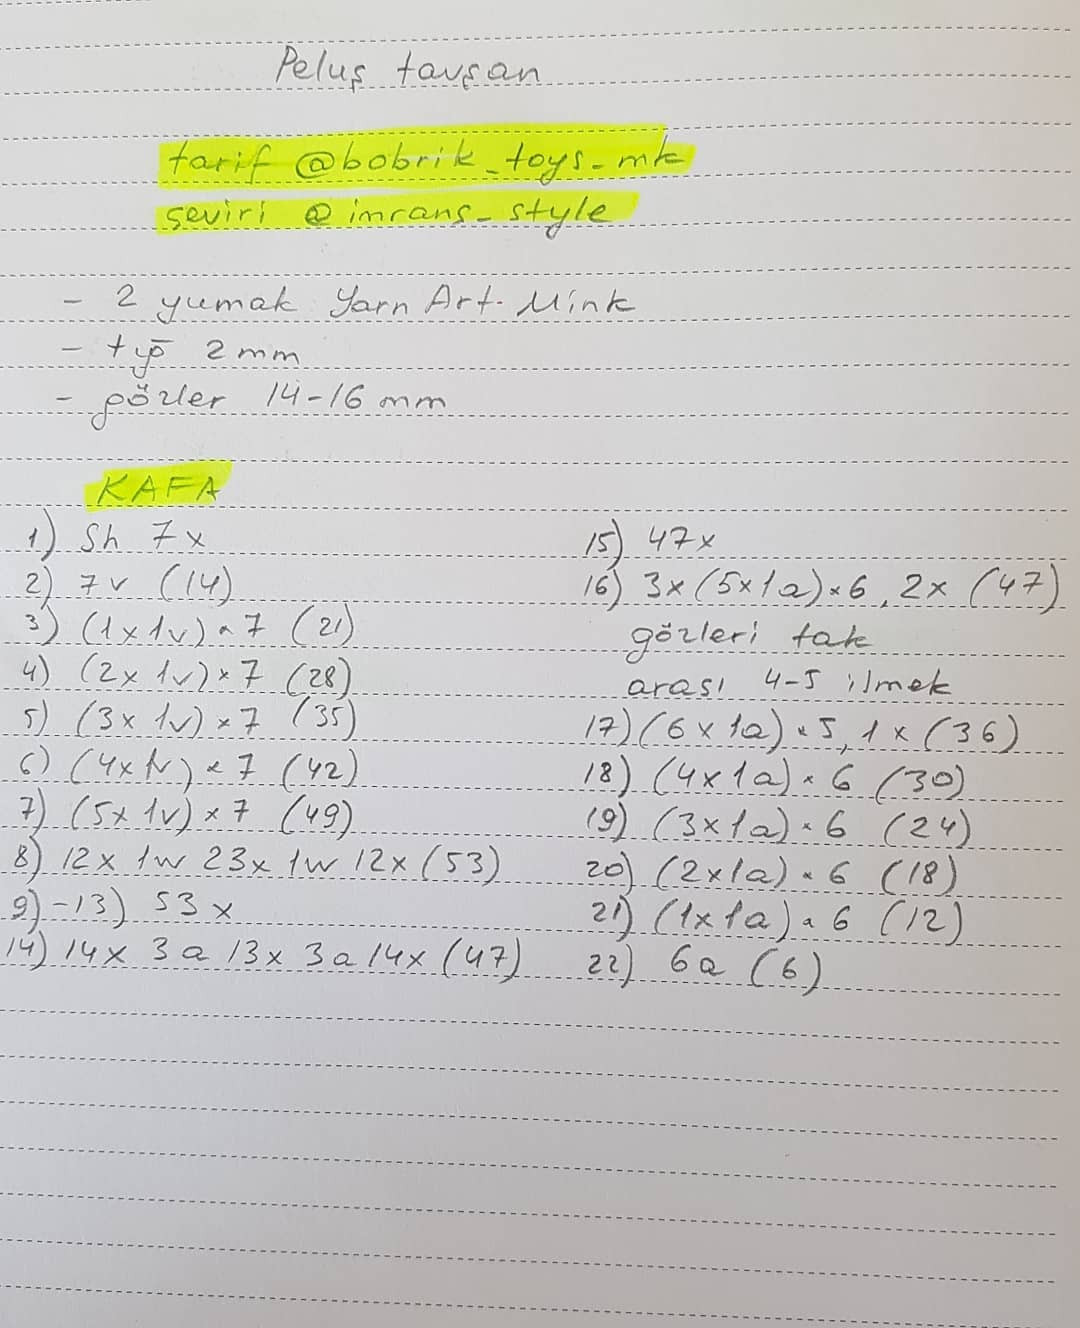 Peluş tavşan
tarif @bobrik_toys_mk
çeviri @imrans_style
- 2 yumak Yarn Art. Mink
- työ 2 mm
- gözler 14-16 mm
KAFA
1) Sh 7x
2) 7v (14)
3) (1x1v)×7 (21)
4) (2x 1v)×7 (28)
5) (3x 1v)×7 (35)
6) (4x1v)×7 (42)
7) (5x 1v)×7 (49)
8) 12x 1w 23x 1w 12x (53)
9)-13) 53x
14) 14x 3a 13x 3a 14x (47)
15) 47x
16) 3x(5x1a)×6, 2x (47)
gözleri tak
arası 4-5 ilmek
17) (6x1a)×5, 1x (36)
18) (4x1a)×6 (30)
19) (3x1a)×6 (24)
20) (2x1a)×6 (18)
21) (1x1a)×6 (12)
22) 6a (6)